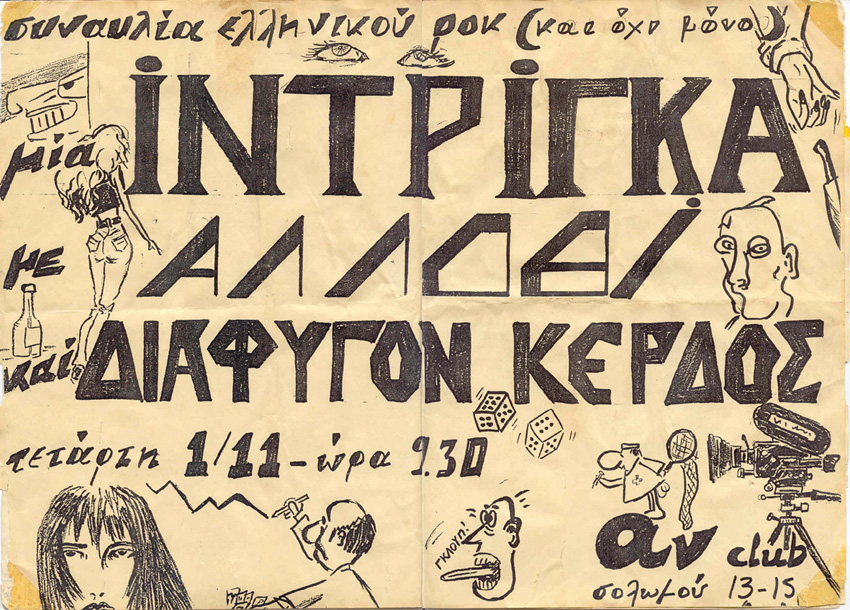 συναυλία ελληνικού ροκ (και όχι μόνο)
μία ίΝΤΡίΓΚΑ
με ΑΛΛΟΘί
καί ΔΙΑΦΥΓΟΝ ΚΕΡΔΟΣ
τετάρτη 1/11 - ώρα 9.30
ΓΚΛΟΥΠ!
αν club
σολωμού 13-15